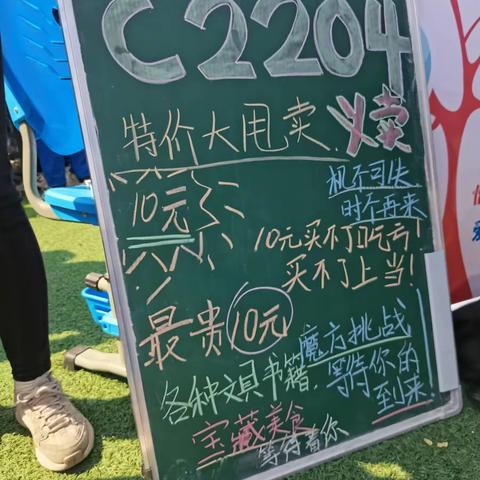 C2204
特价大甩卖 义卖
10元
机不可失
时不再来
10元买不了吃亏!
买不了上当!
最贵10元
各种文具书籍,
魔方挑战
等待你的
到来!
宝藏美食
等待着你